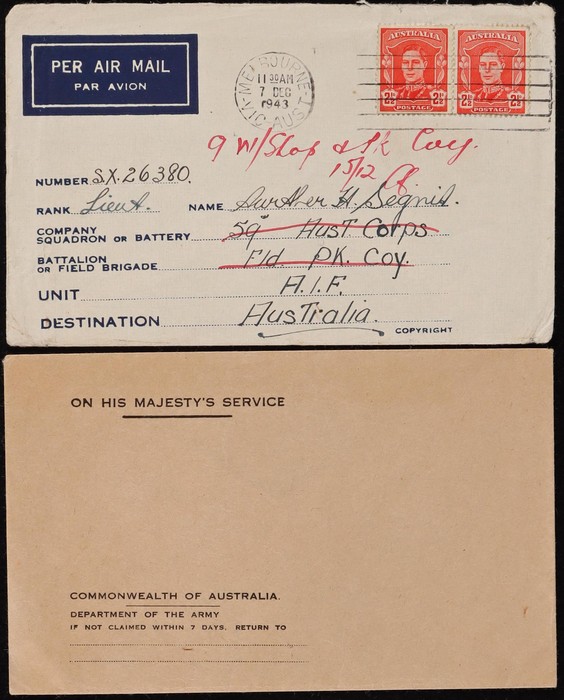 PER AIR MAIL
PAR AVION
MELBOURNE
11 30 AM
7 DEC
1943
VIC. AUST
AUSTRALIA
2½ 2½
POSTAGE
AUSTRALIA
2½ 2½
POSTAGE
9 W/Shop & Pk Coy.
15/12
NUMBER S.X.26380.
RANK Lieut. NAME Arthur H. Segnit.
COMPANY
SQUADRON OR BATTERY Aust Corps
BATTALION
OR FIELD BRIGADE Fld. PK. Coy.
UNIT A.I.F.
DESTINATION Australia.
COPYRIGHT
ON HIS MAJESTY'S SERVICE
COMMONWEALTH OF AUSTRALIA.
DEPARTMENT OF THE ARMY
IF NOT CLAIMED WITHIN 7 DAYS, RETURN TO